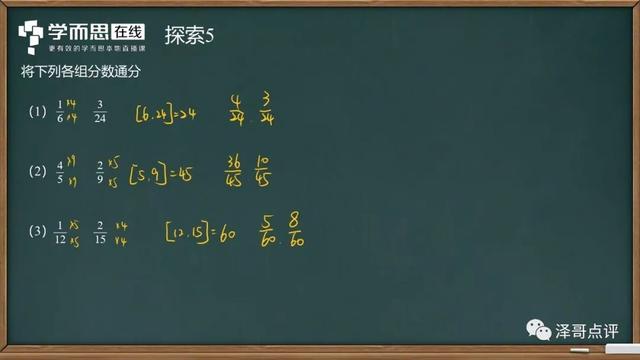 学而思在线 探索5
更有效的学而思本地直播课
将下列各组分数通分
(1) 1/6 ×4 ×4 3/24 [6,24]=24 4/24, 3/24
(2) 4/5 ×9 ×9 2/9 ×5 ×5 [5,9]=45 36/45 10/45
(3) 1/12 ×5 ×5 2/15 ×4 ×4 [12,15]=60 5/60, 8/60
泽哥点评